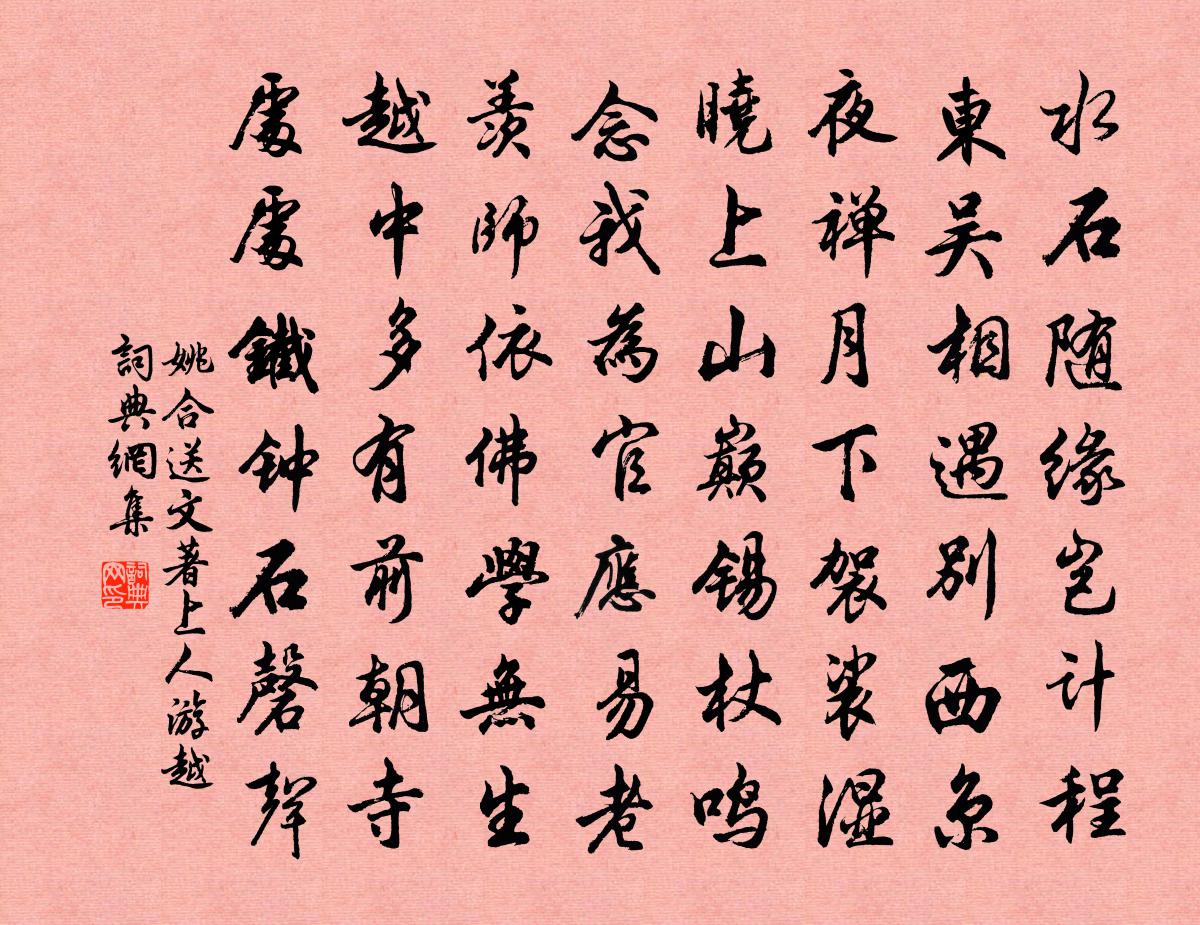 水石随緣豈计程
東吴相遇别西京
夜禅月下袈裟湿
曉上山巔锡杖鸣
念我為官應易老
羨師依佛學無生
越中多有前朝寺
處處鐵钟石磬聲
姚合送文著上人游越
詞典網集
詞典网印